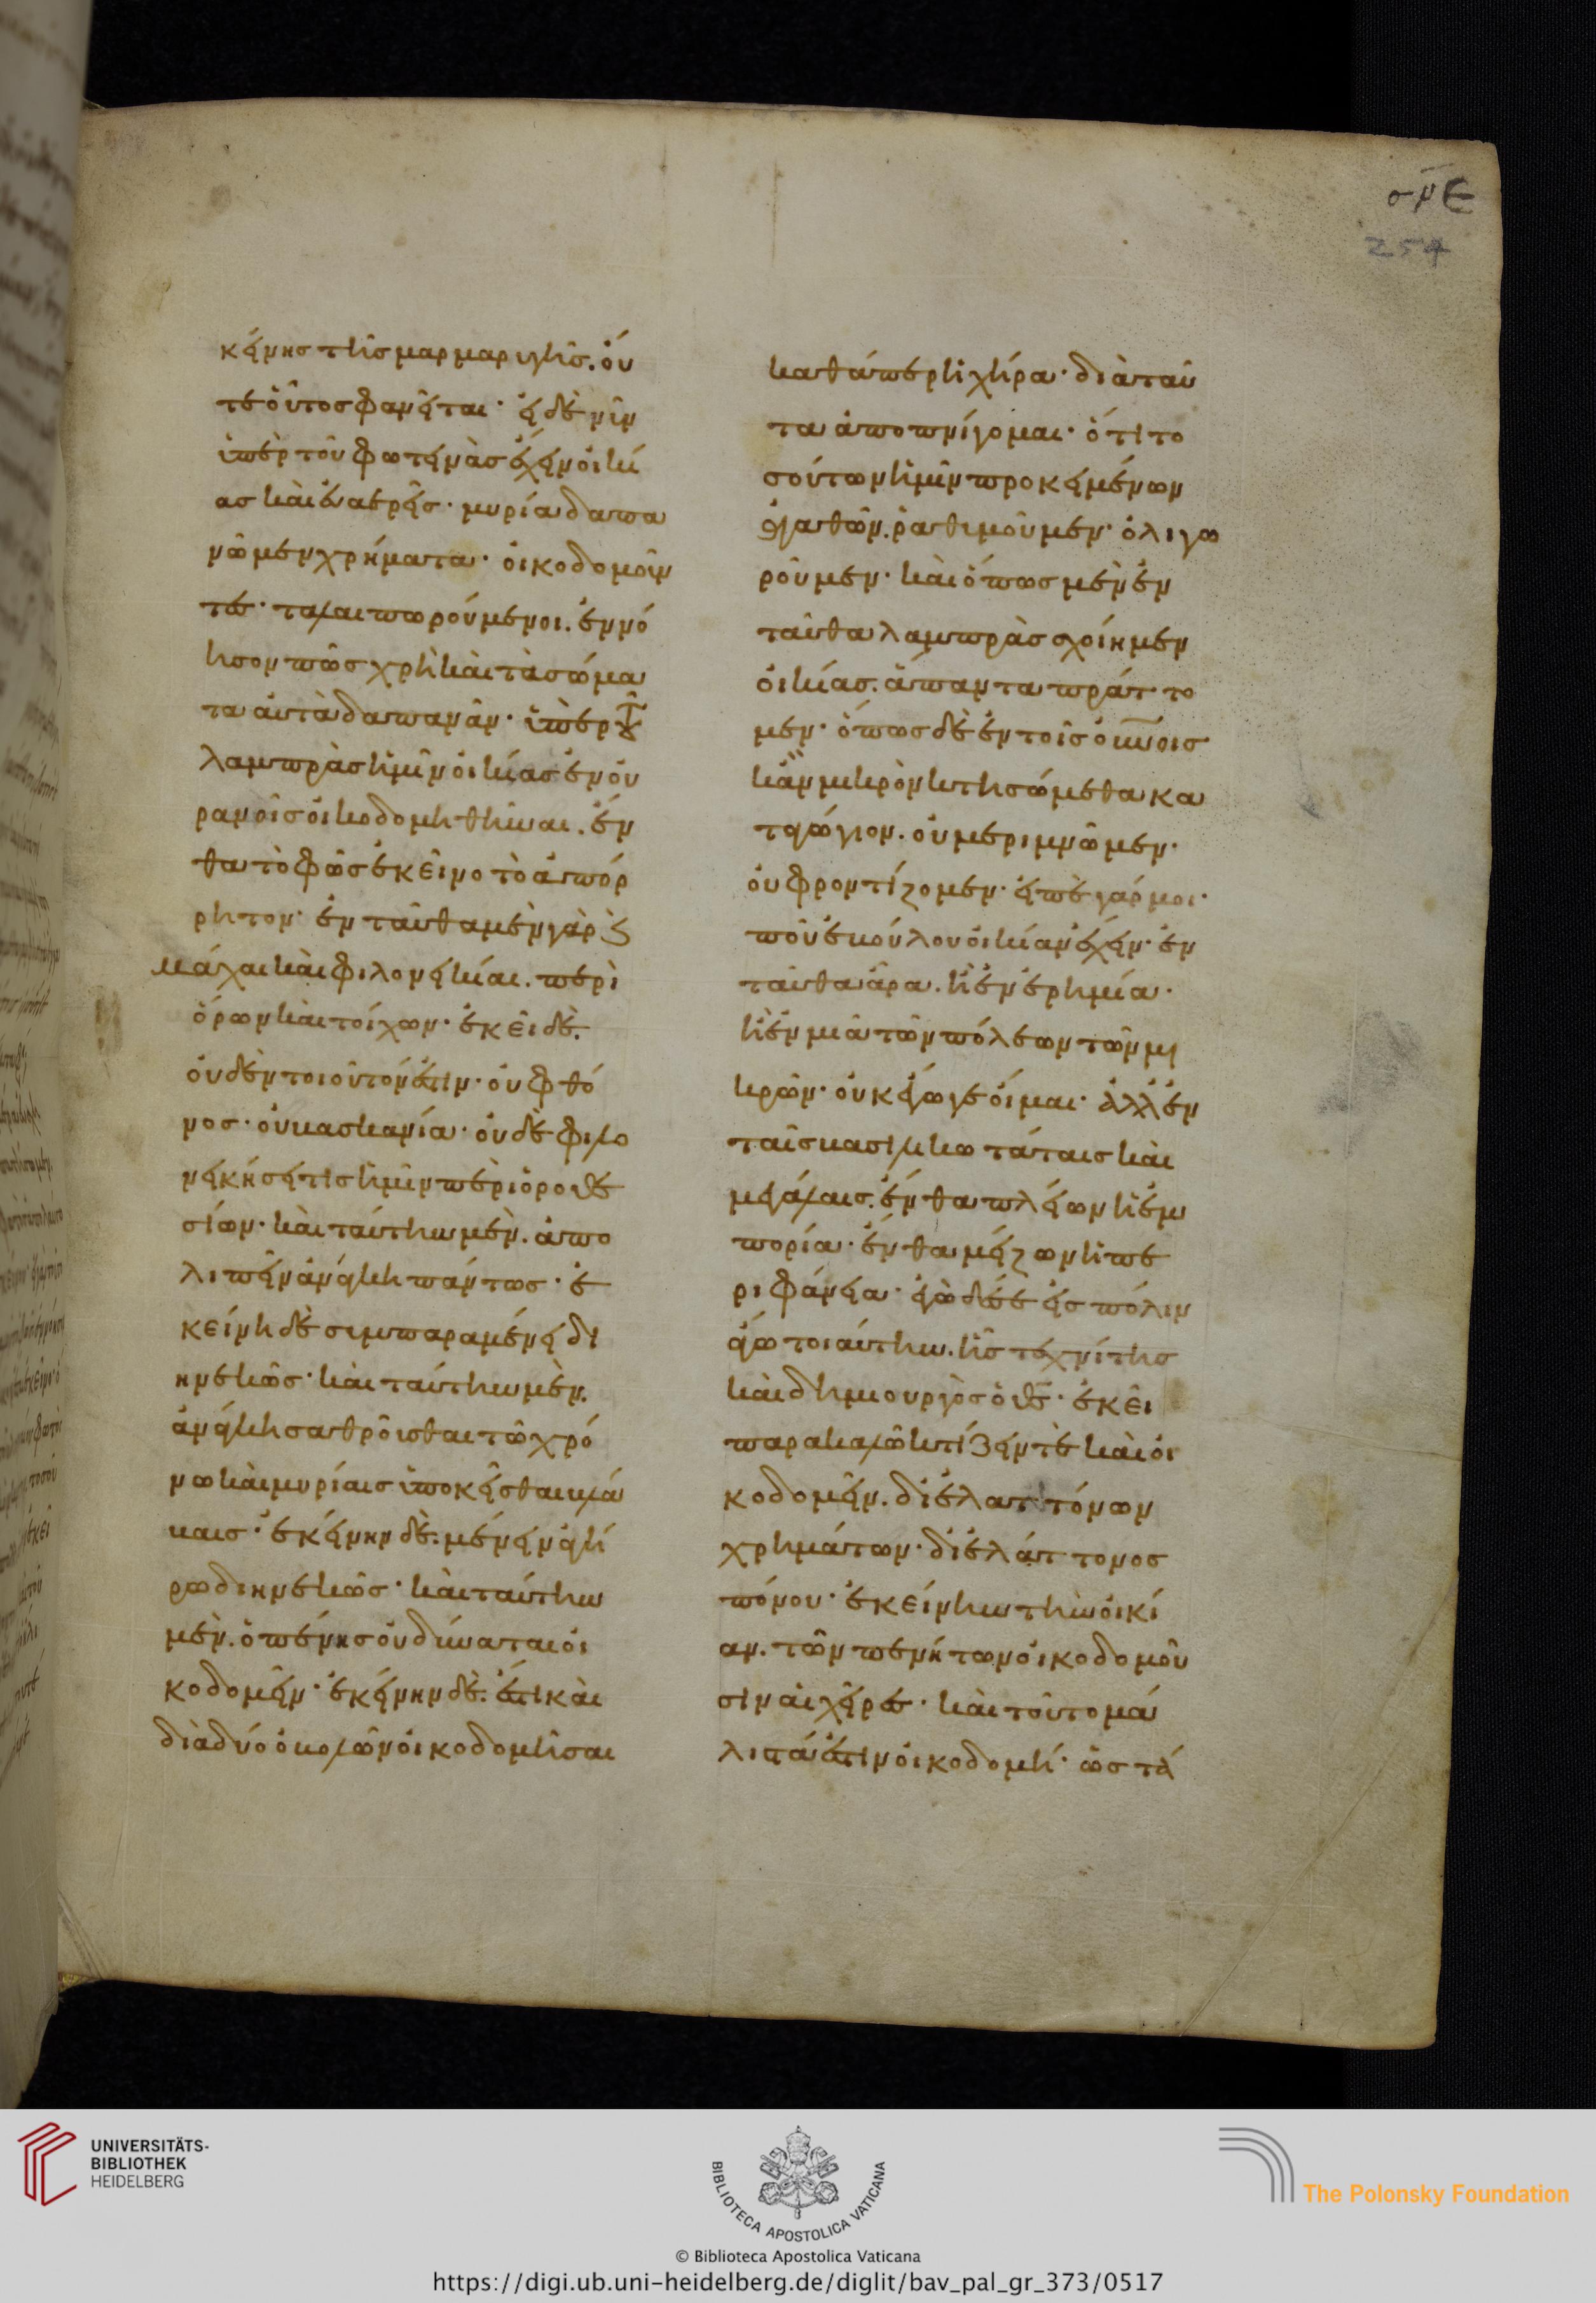 σνε
254
κείνης τῆς μαρμαρυγῆς. ὀύ
τε ὁῦτος φανεῖται· ἐι δὲ νῦν
ὑπὲρ τοῦ φωτεινὰς ἔχειν ὀικί
ας καὶ ἐυαερεῖς· μυρία δαπα
νῶμεν χρήματα· ὀικοδομοῦν
τες· ταλαιπωρούμενοι. ἐννό
ησον πῶς χρὴ καὶ τὰ σώμα
τα ἀυτὰ δαπανᾶν· ὑπὲρ τοῦ
λαμπρὰς ἡμῖν ὀικίας ἐν ὀυ
ρανοῖς ὀικοδομηθῆναι. ἔν
θα τὸ φῶς ἐκεῖνο τὸ ἀπόρ
ρητον· ἐνταῦθα μὲν γὰρ καὶ
μάχαι καὶ φιλονεικίαι. περὶ
ὅρων καὶ τοίχων· ἐκεῖ δὲ.
ὀυδὲν τοιοῦτόν ἐστιν· ὀυ φθό
νος· ὀυ βασκανία· ὀυδὲ φιλο
νεικήσει τις ἡμῖν περὶ ὁροθε
σίων· καὶ ταύτην μὲν. ἀπο
λιπεῖν ἀνάγκη πάντως· ἐ
κείνη δὲ συμπαραμένει δι
ηνεκῶς· καὶ ταύτην μὲν.
ἀνάγκη σαθροῦσθαι τῶ χρό
νω καὶ μυρίαις ὑποκεῖσθαι βλά
βαις· ἐκείνην δὲ. μένειν ἀγή
ρω διηνεκῶς· καὶ ταύτην
μὲν. ὁ πένης ὀυ δύναται ὀι
κοδομεῖν· ἐκείνην δὲ. ἔστι καὶ
διὰ δύο ὀβολῶν ὀικοδομῆσαι
καθάπερ ἡ χήρα· διὰ ταῦ
τα ἀποπνίγομαι· ὅτι το
σούτων ἡμῖν προκειμένων
ἀγαθῶν. ῥαθυμοῦμεν· ὀλιγω
ροῦμεν· καὶ ὅπως μὲν ἐν
ταῦθα λαμπρὰς σχοίημεν
ὀικίας. ἅπαντα πράττο
μεν· ὅπως δὲ ἐν τοῖς ὀυνοις
κἂν μικρὸν κτησώμεθα κα
ταγώγιον. ὀυ μεριμνῶμεν·
ὀυ φροντίζομεν· ἐιπὲ γάρ μοι·
ποῦ ἐβούλου ὀικίαν ἔχειν· ἐν
ταῦθα ἆρα. ἢ ἐν ἐρημία·
ἢ ἐν μιᾶ τῶν πόλεων τῶν μι
κρῶν· ὀυκ ἔγωγε ὀίμαι· ἀλλ' ἐν
ταῖς βασιλικωτάταις καὶ
μεγάλαις. ἔνθα πλείων ἡ ἐμ
πορία· ἔνθα μείζων ἡ πε
ριφάνεια· ἐγὼ δέ σε ἐις πόλιν
ἄγω τοιαύτην. ἧς τεχνίτης
καὶ δημιουργὸς ὁ θς· ἐκεῖ
παρακαλῶ κτίζειν τὲ καὶ ὀι
κοδομεῖν. δι' ἐλαττόνων
χρημάτων· δι' ἐλάττονος
πόνου· ἐκείνην τὴν ὀικί
αν. τῶν πενήτων ὀικοδομοῦ
σιν ἁι χεῖρες· καὶ τοῦτο μά
λιστά ἐστιν ὀικοδομή· ὡς τά
UNIVERSITÄTS-
BIBLIOTHEK
HEIDELBERG
BIBLIOTECA APOSTOLICA VATICANA
The Polonsky Foundation
© Biblioteca Apostolica Vaticana
https://digi.ub.uni-heidelberg.de/diglit/bav_pal_gr_373/0517